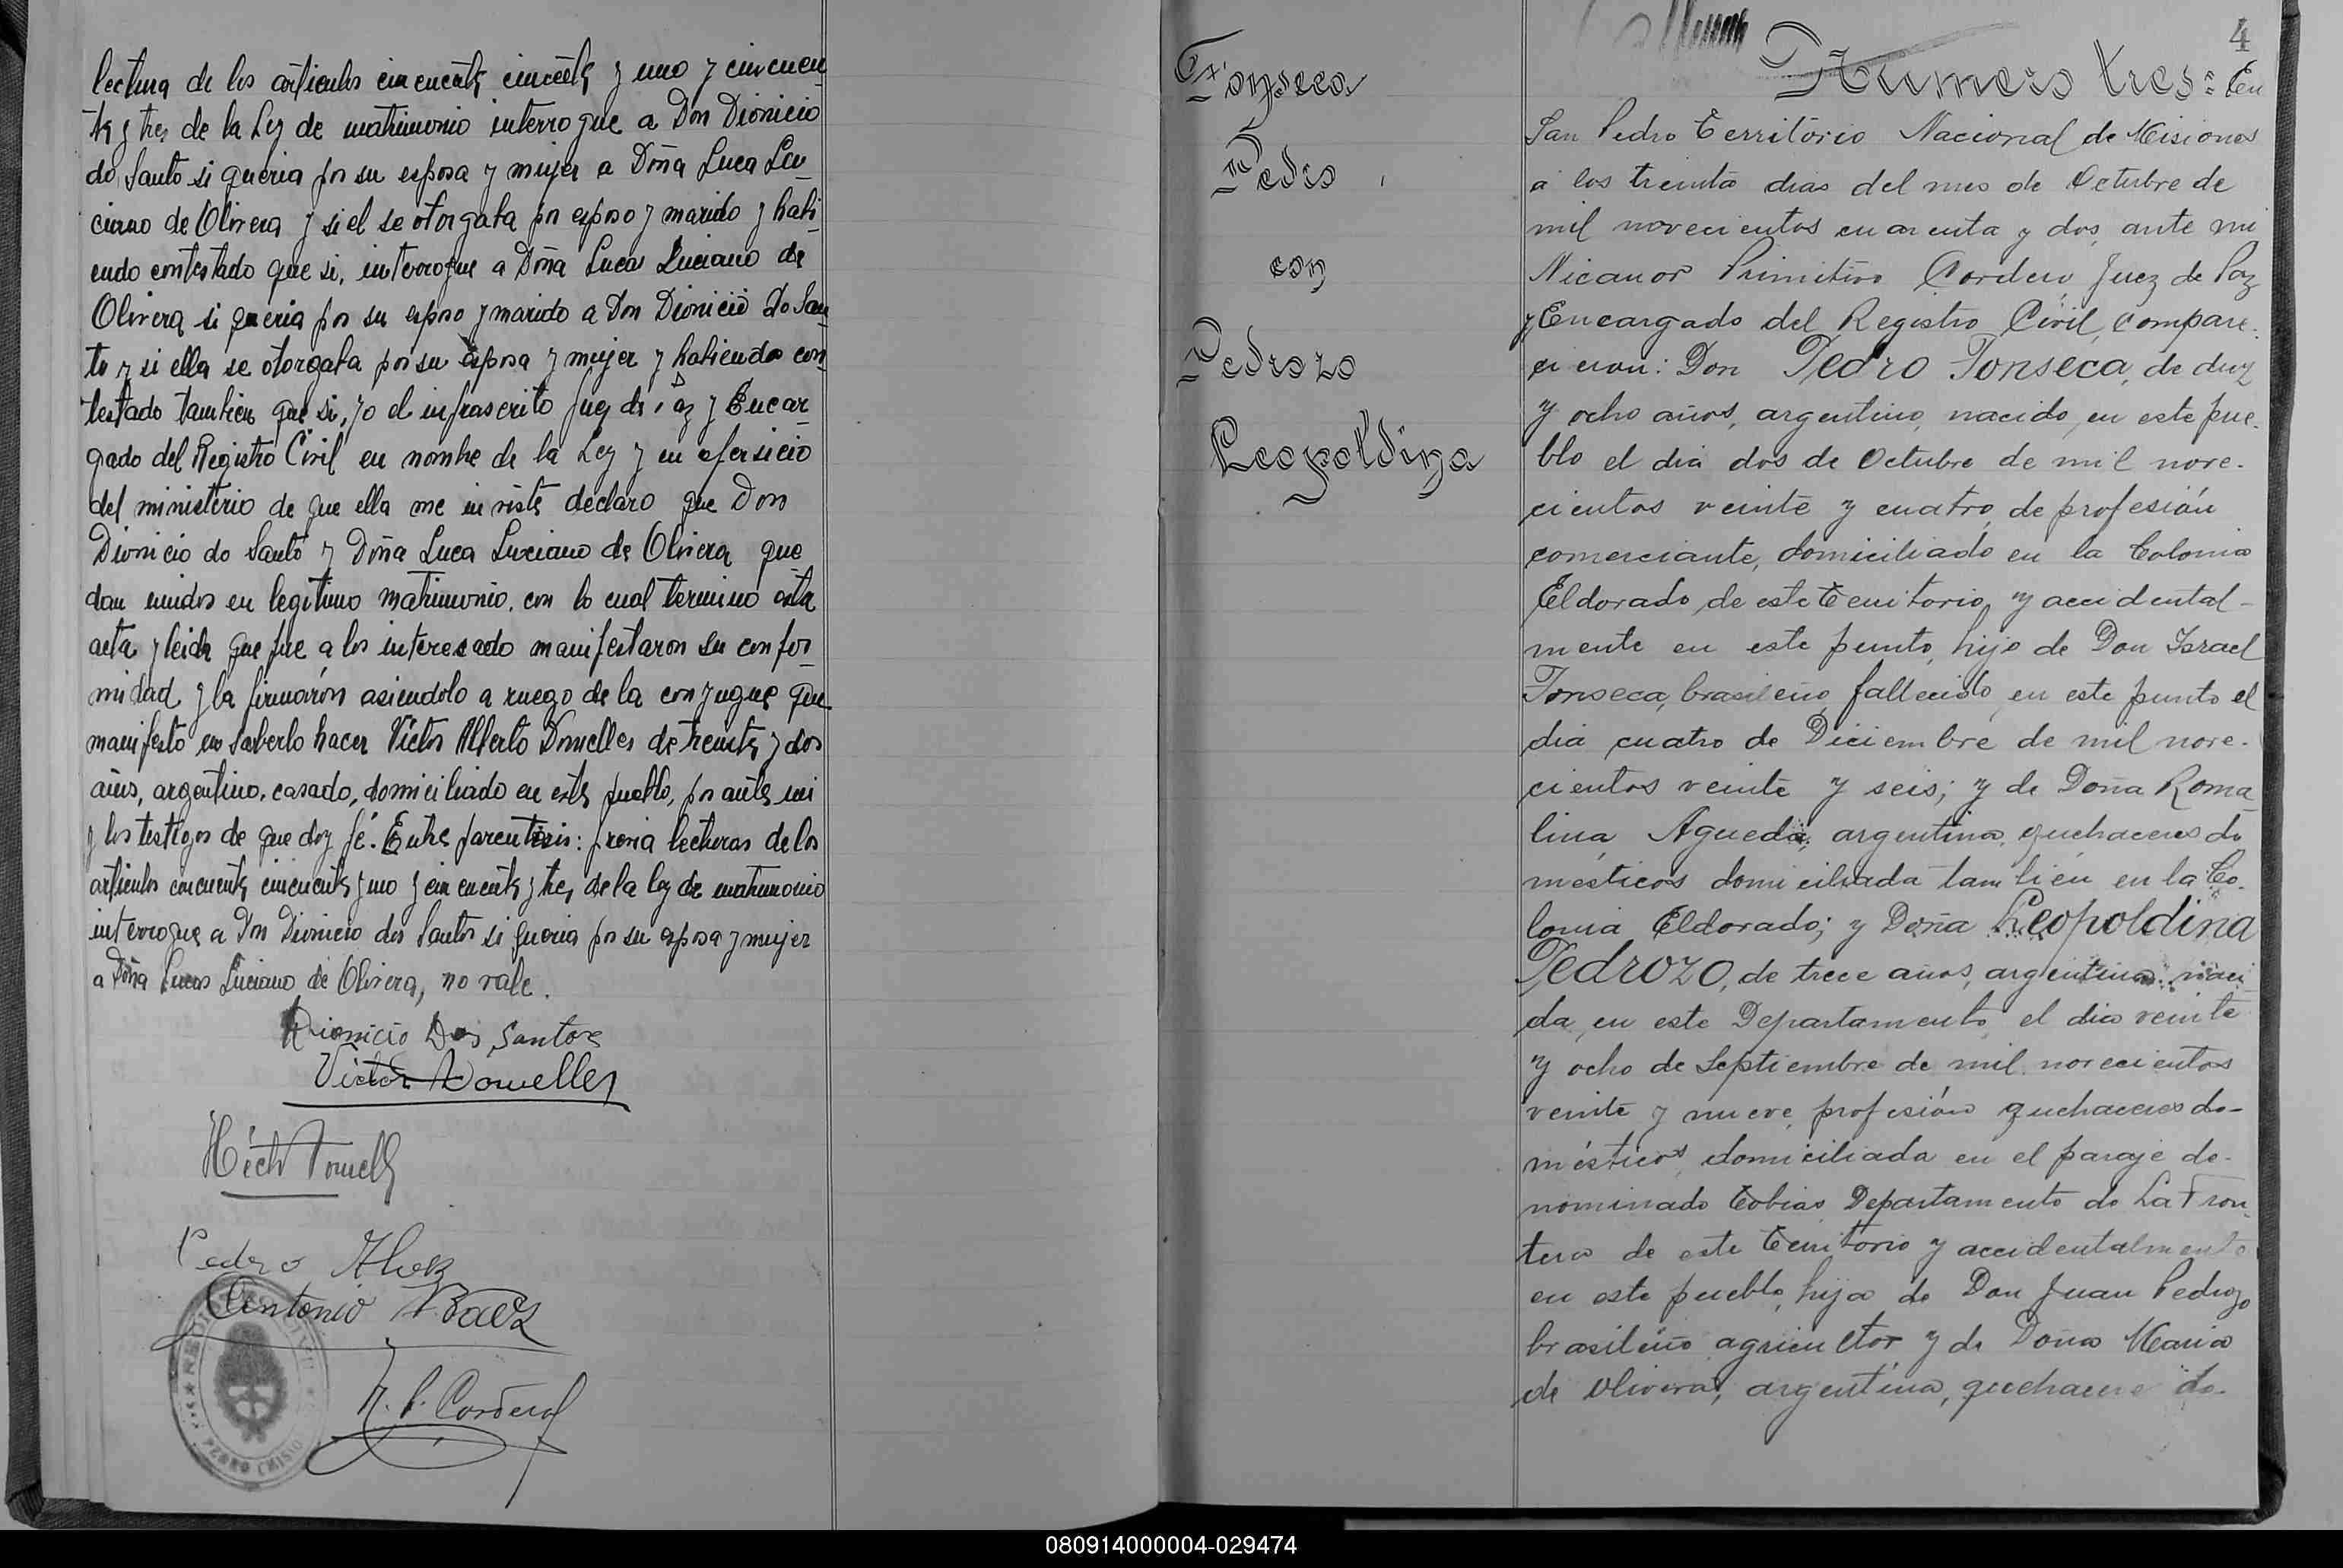 lectura de los artículos cincuenta cincuenta y uno y cincuen
ta y tres de la Ley de matrimonio interrogue a Don Dionicio
do Santo si queria por su esposa y mujer a Doña Luca Lu
ciano de Olivera y si el se otorgaba por esposo y marido y habi
endo contestado que si, interrogue a Doña Lucas Luciano de
Olivera si queria por su esposo y marido a Don Dionicio do San
to y si ella se otorgaba por su esposa y mujer y habiendo con
testado tambien que si, yo el infrascrito Juez de Paz y Encar
gado del Registro Civil en nombre de la Ley y en ejersicio
del ministerio de que ella me inviste declaro que Don
Dionicio do Santo y Doña Luca Luciano de Olivera que
dan unidos en legitimo matrimonio. con lo cual termino esta
acta y leida que fue a los interesado manifestaron su confor
midad y la firmarón asiendolo a ruego de la conyugue que
manifesto no saberlo hacer Víctor Alberto Dornelles de treinta y dos
años, argentino, casado, domiciliado en este pueblo, por ante mi
y los testigos de que doy fé. Entre parentisis: previa lecturas de los
artículos cincuenta cincuenta y uno y cincuenta y tres de la ley de matrimonio
interrogue a Don Dionicio dos Santos si queria por su esposa y mujer
a Doña Lucas Luciano de Olivera, no vale.
Dionicio Dos Santos
Victor Dornelles
Pedro Alvez
Antonio Baez
N. P. Cordero
Fonseca
Pedro
con
Pedrozo
Leopoldina
4
Número tres: En
San Pedro Territorio Nacional de Misiones
a los treinta dias del mes de Octubre de
mil novecientos cuarenta y dos, ante mi
Nicanor Primitivo Cordero Juez de Paz
y Encargado del Registro Civil, compare-
cieron: Don Pedro Fonseca, de diez
y ocho años, argentino, nacido, en este pue-
blo el dia dos de Octubre de mil nove-
cientos veinte y cuatro, de profesión
comerciante, domiciliado en la Colonia
Eldorado, de este territorio, y accidental-
mente en este punto, hijo de Don Israel
Fonseca, brasileño, fallecido, en este punto el
dia cuatro de Diciembre de mil nove-
cientos veinte y seis; y de Doña Roma
lina Agueda, argentina, quehaceres do
mésticos domiciliada también en la Co-
lonia Eldorado; y Doña Leopoldina
Pedrozo, de trece años, argentina, naci
da, en este Departamento, el dia veinte
y ocho de Septiembre de mil novecientos
veinte y nueve, profesión quehaceres do-
mésticos, domiciliada en el paraje de-
nominado Tobias Departamento de La Fron-
tera de este territorio y accidentalmente
en este pueblo, hija de Don Juan Pedrozo
brasileño agricultor y de Doña Maria
de Olivera, argentina, quehaceres do-
080914000004-029474